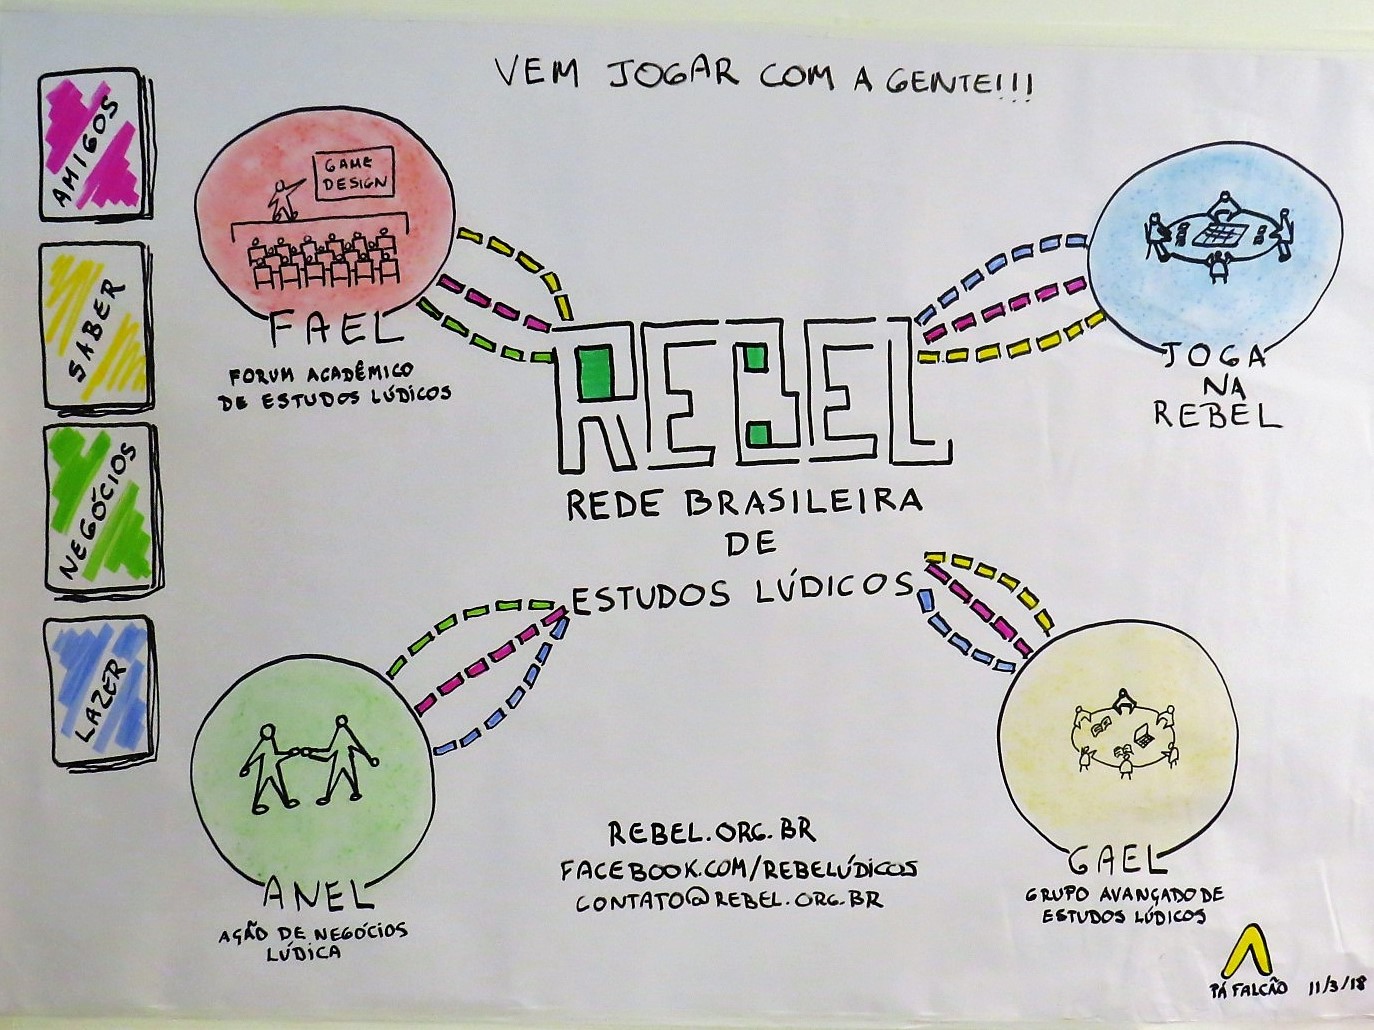 VEM JOGAR COM A GENTE!!!
AMIGOS
SABER
NEGÓCIOS
LAZER
GAME
DESIGN
FAEL
FORUM ACADÊMICO
DE ESTUDOS LÚDICOS
JOGA
NA
REBEL
REBEL
REDE BRASILEIRA
DE
ESTUDOS LÚDICOS
ANEL
AÇÃO DE NEGÓCIOS
LÚDICA
GAEL
GRUPO AVANÇADO DE
ESTUDOS LÚDICOS
REBEL.ORG.BR
FACEBOOK.COM/REBELÚDICOS
CONTATO@REBEL.ORG.BR
PÁ FALCÃO 11/3/18